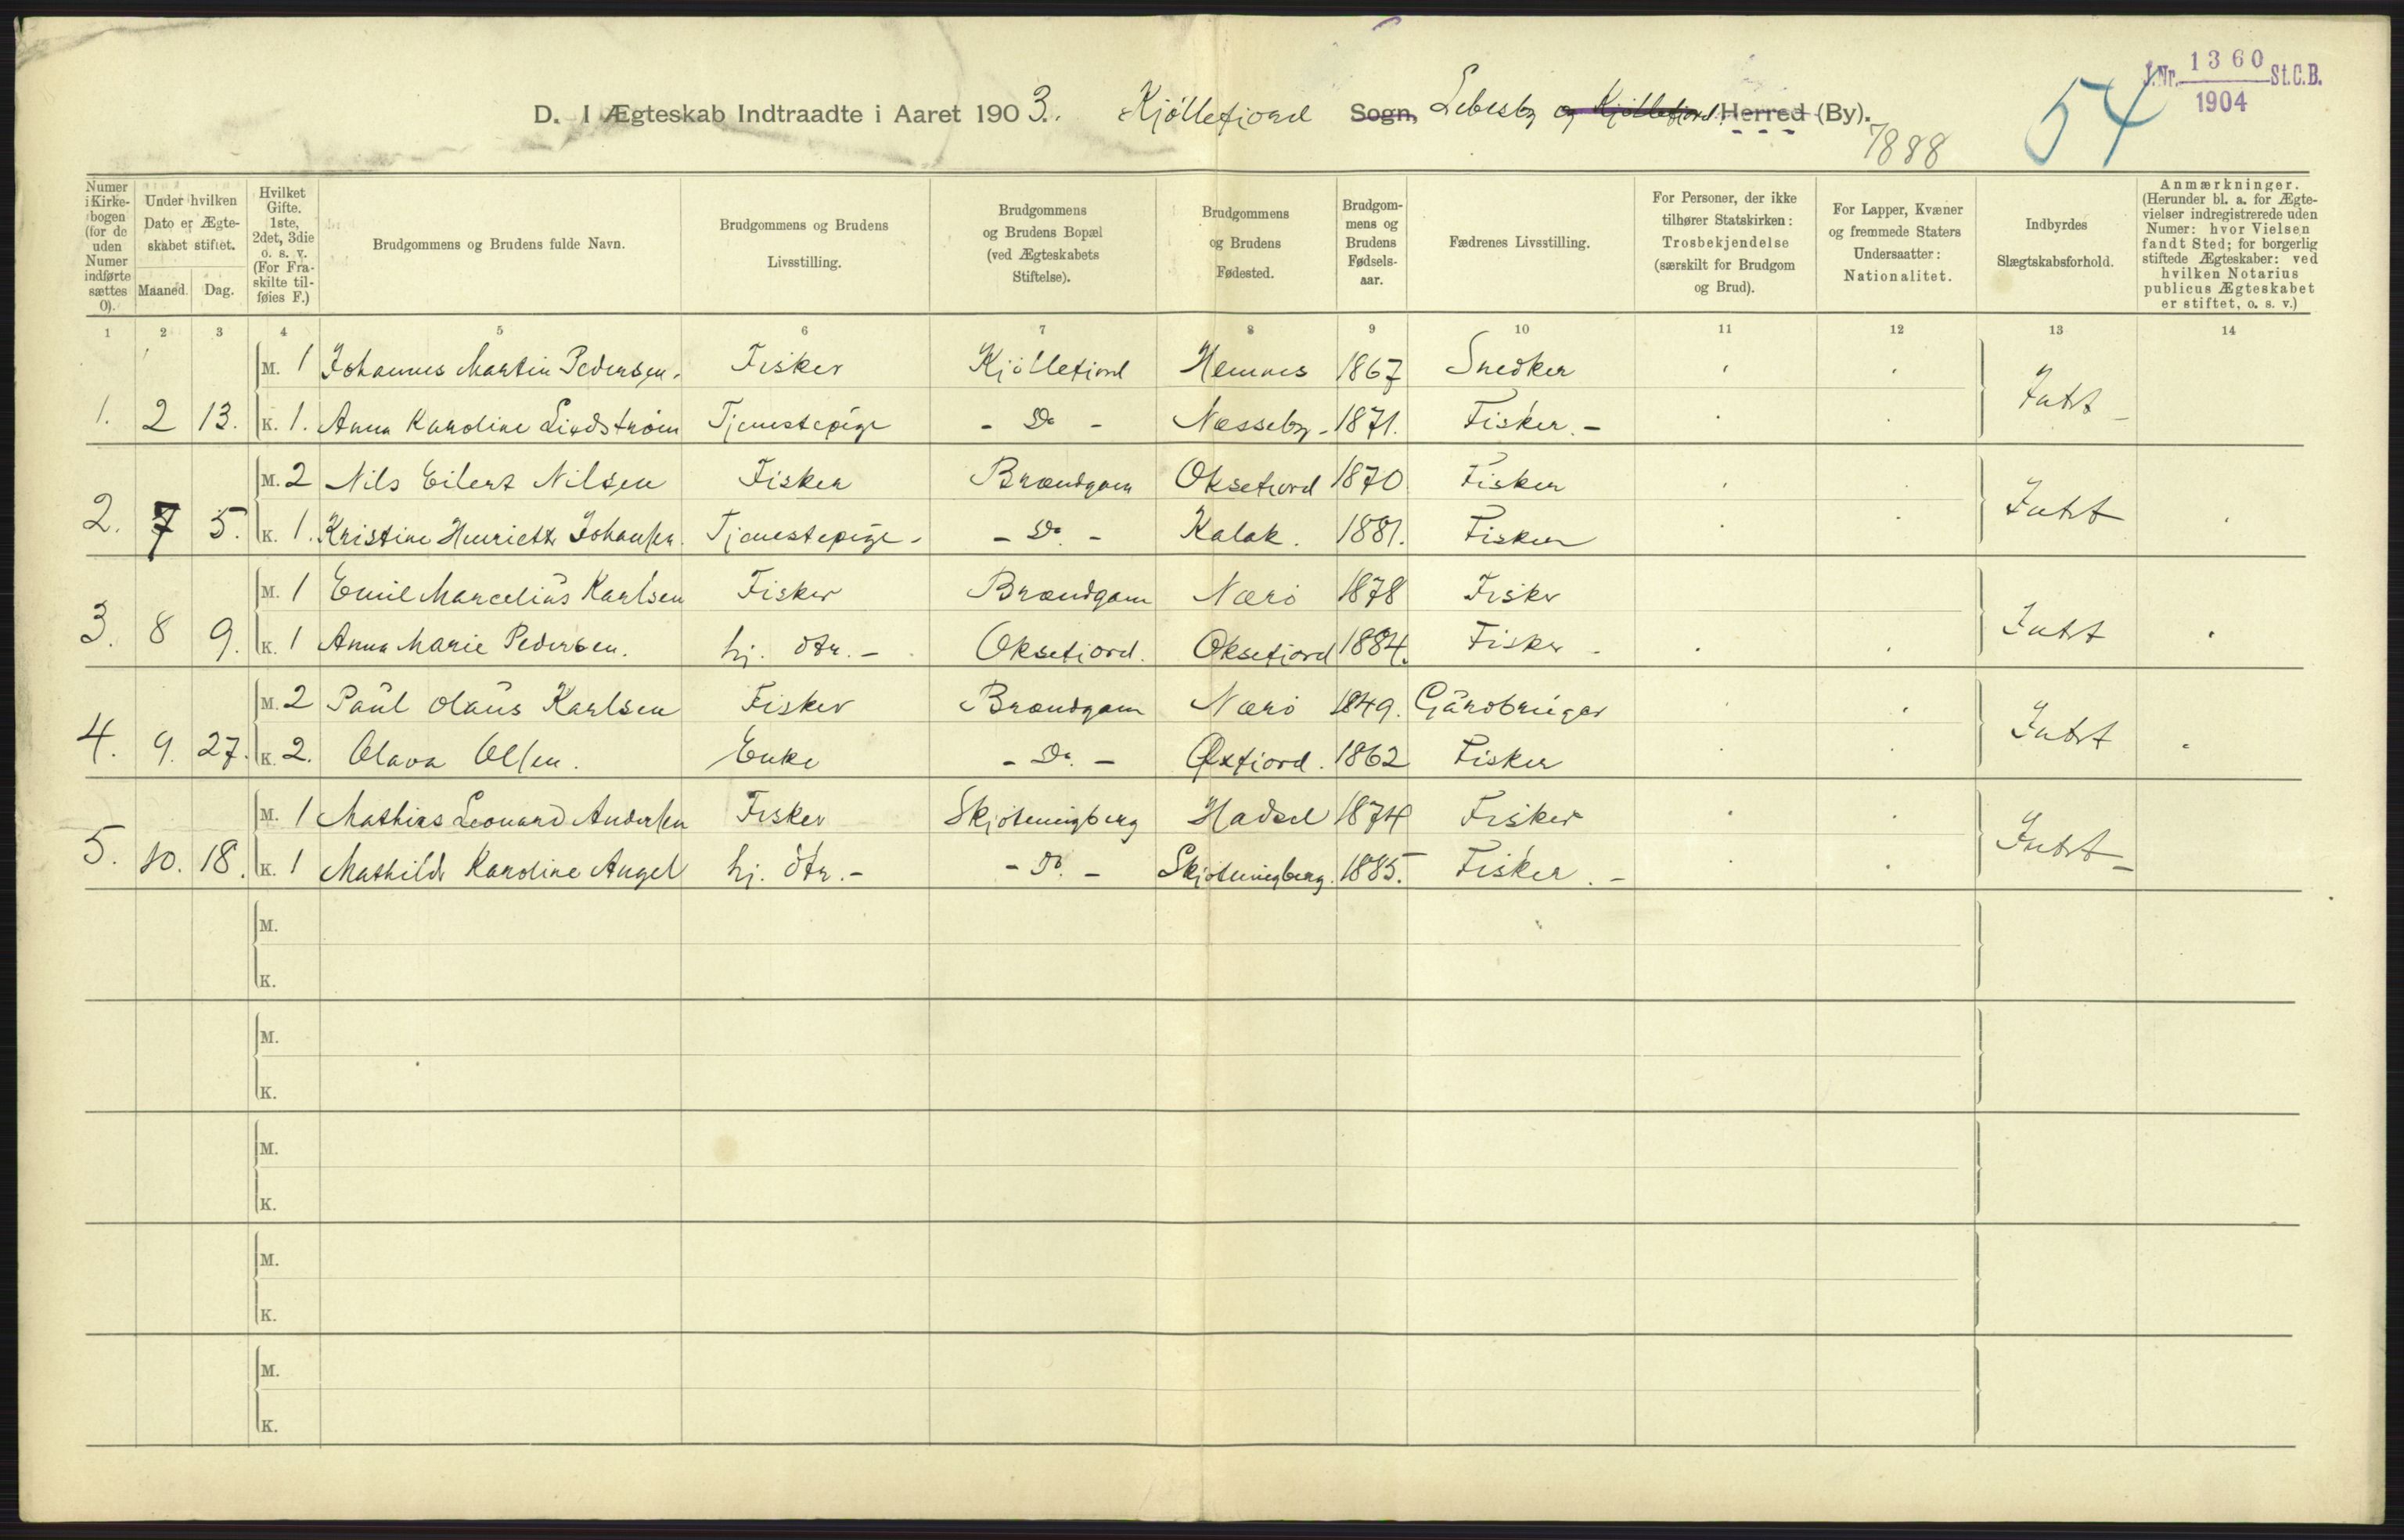 J.Nr. 1360 St.C.B.
1904
54
D. I Ægteskab Indtraadte i Aaret 1903. Kjøllefjord Sogn, Lebesby og Kjøllefjord Herred (By).
7888
Numer i Kirkebogen (for de uden Numer indførte sættes 0).
Under hvilken Dato er Ægteskabet stiftet.
Maaned. Dag.
Hvilket Gifte. 1ste, 2det, 3die o. s. v. (For Fraskilte tilføies F.)
Brudgommens og Brudens fulde Navn.
Brudgommens og Brudens Livsstilling.
Brudgommens og Brudens Bopæl (ved Ægteskabets Stiftelse).
Brudgommens og Brudens Fødested.
Brudgommens og Brudens Fødselsaar.
Fædrenes Livsstilling.
For Personer, der ikke tilhører Statskirken: Trosbekjendelse (særskilt for Brudgom og Brud).
For Lapper, Kvæner og fremmede Staters Undersaatter: Nationalitet.
Indbyrdes Slægtskabsforhold.
Anmærkninger. (Herunder bl. a. for Ægtevielser indregistrerede uden Numer: hvor Vielsen fandt Sted; for borgerlig stiftede Ægteskaber: ved hvilken Notarius publicus Ægteskabet er stiftet, o. s. v.)
1 2 3 4 5 6 7 8 9 10 11 12 13 14
M. 1 Johannes Martin Pedersen. Fisker Kjöllefjord Hemnes 1867 Snedker Intet
1. 2 13. K. 1. Anna Karoline Lindström Tjenestepige - Do - Næsseby - 1871. Fisker. -
M. 2 Nils Eilert Nilsen Fisker Brændgam Oksefjord 1870 Fisker Intet
2. 7 5. K. 1. Kristine Henriette Johansen. Tjenestepige - - Do. - Kalak. 1881. Fisker
M. 1 Emil Marcelius Karlsen Fisker Brændgam Nærö 1878 Fisker Intet
3. 8 9. K. 1 Anna Marie Pedersen. hj. dtr. - Oksefjord. Oksefjord 1884. Fisker
M. 2 Paul Olaus Karlsen Fisker Brændgam Nærö 1849. Gårdbruger Intet
4. 9. 27. K. 2. Olava Olsen. Enke - Do. - Oxfjord. 1862 Fisker
M. 1 Mathias Leonard Andersen Fisker Skjötningberg Hadsel 1874 Fisker Intet
5. 10. 18. K. 1 Mathilde Karoline Angel hj. dtr. - - Do. - Skjötningberg. 1885. Fisker. -
M.
K.
M.
K.
M.
K.
M.
K.
M.
K.